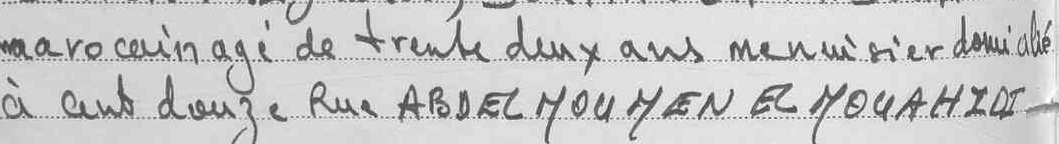 marocain agé de trente deux ans menuisier domicilié
à cent douze Rue ABDELMOUMEN EL MOUAHIDI